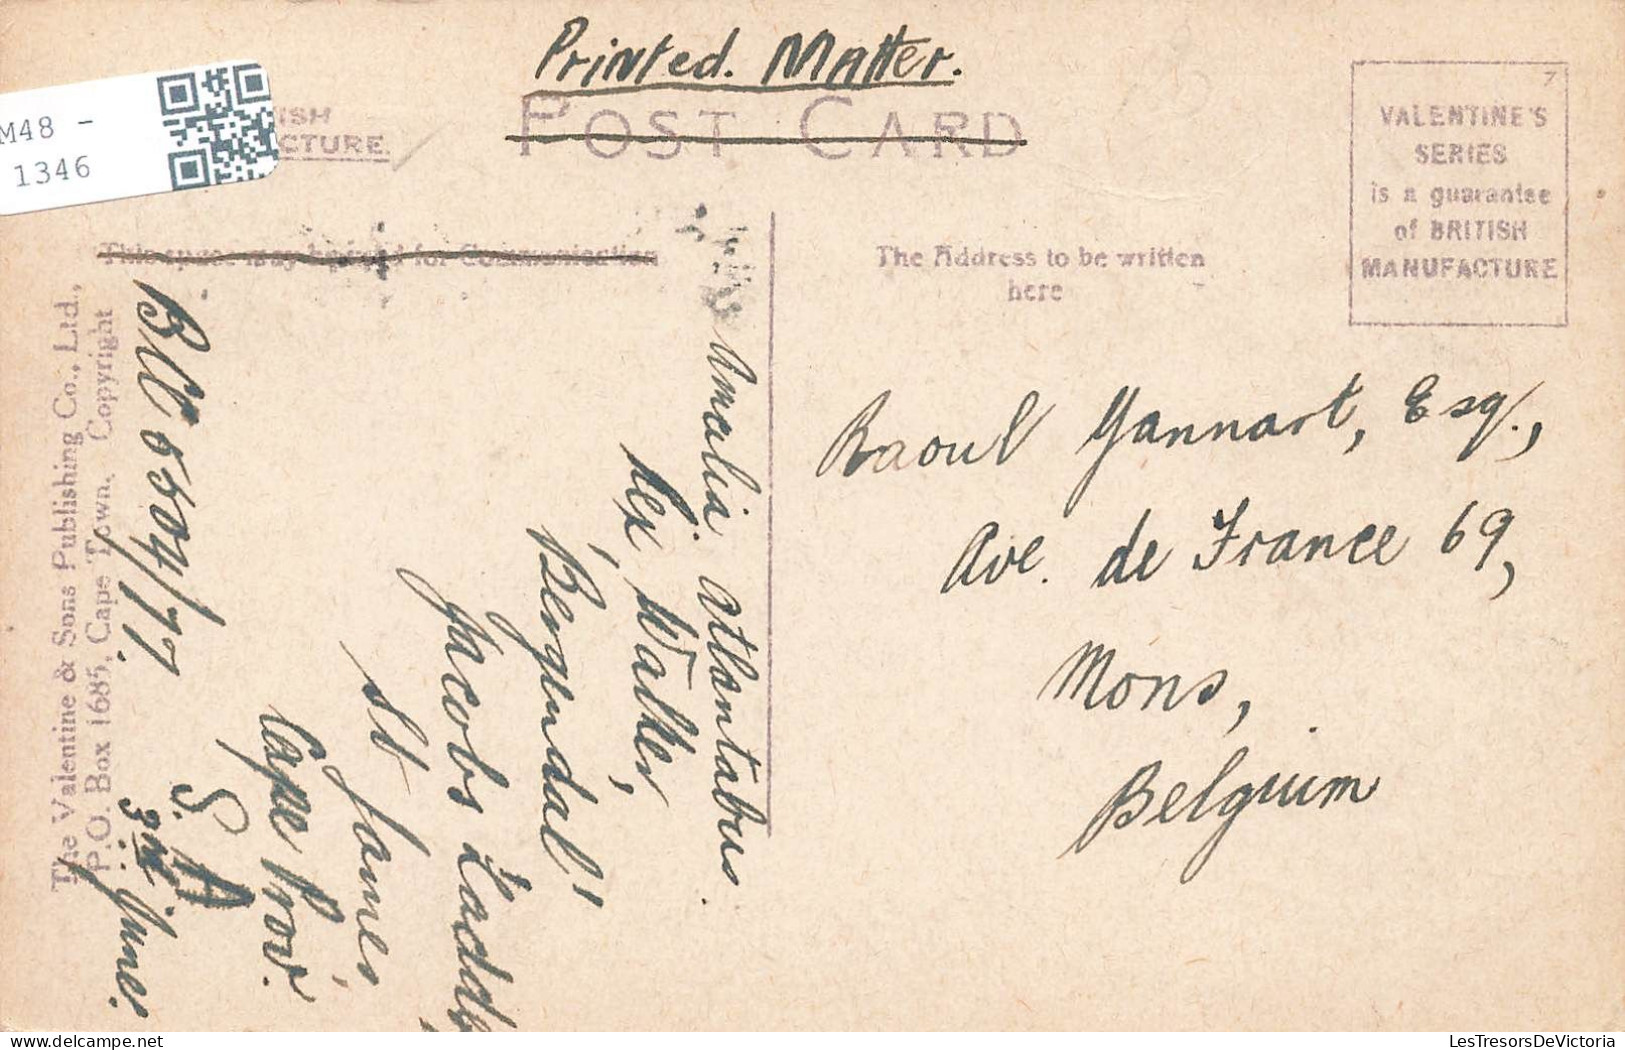 Printed. Matter.
POST CARD
M48 -
1346
ISH
CTURE.
7
VALENTINE'S
SERIES
is a guarantee
of BRITISH
MANUFACTURE
This space may be used for Communication
The Address to be written
here
The Valentine & Sons Publishing Co., Ltd.,
P.O. Box 1685, Cape Town. Copyright
Amalia Atlantabus.
Lex Walker,
"Bergendal"
Jacobs Ladder,
St James,
Cape Prov.
S. A
3rd June.
5504/77.
Raoul Yannart, Esq.,
Ave. de France 69,
Mons,
Belgium
LesTresorsDeVictoria